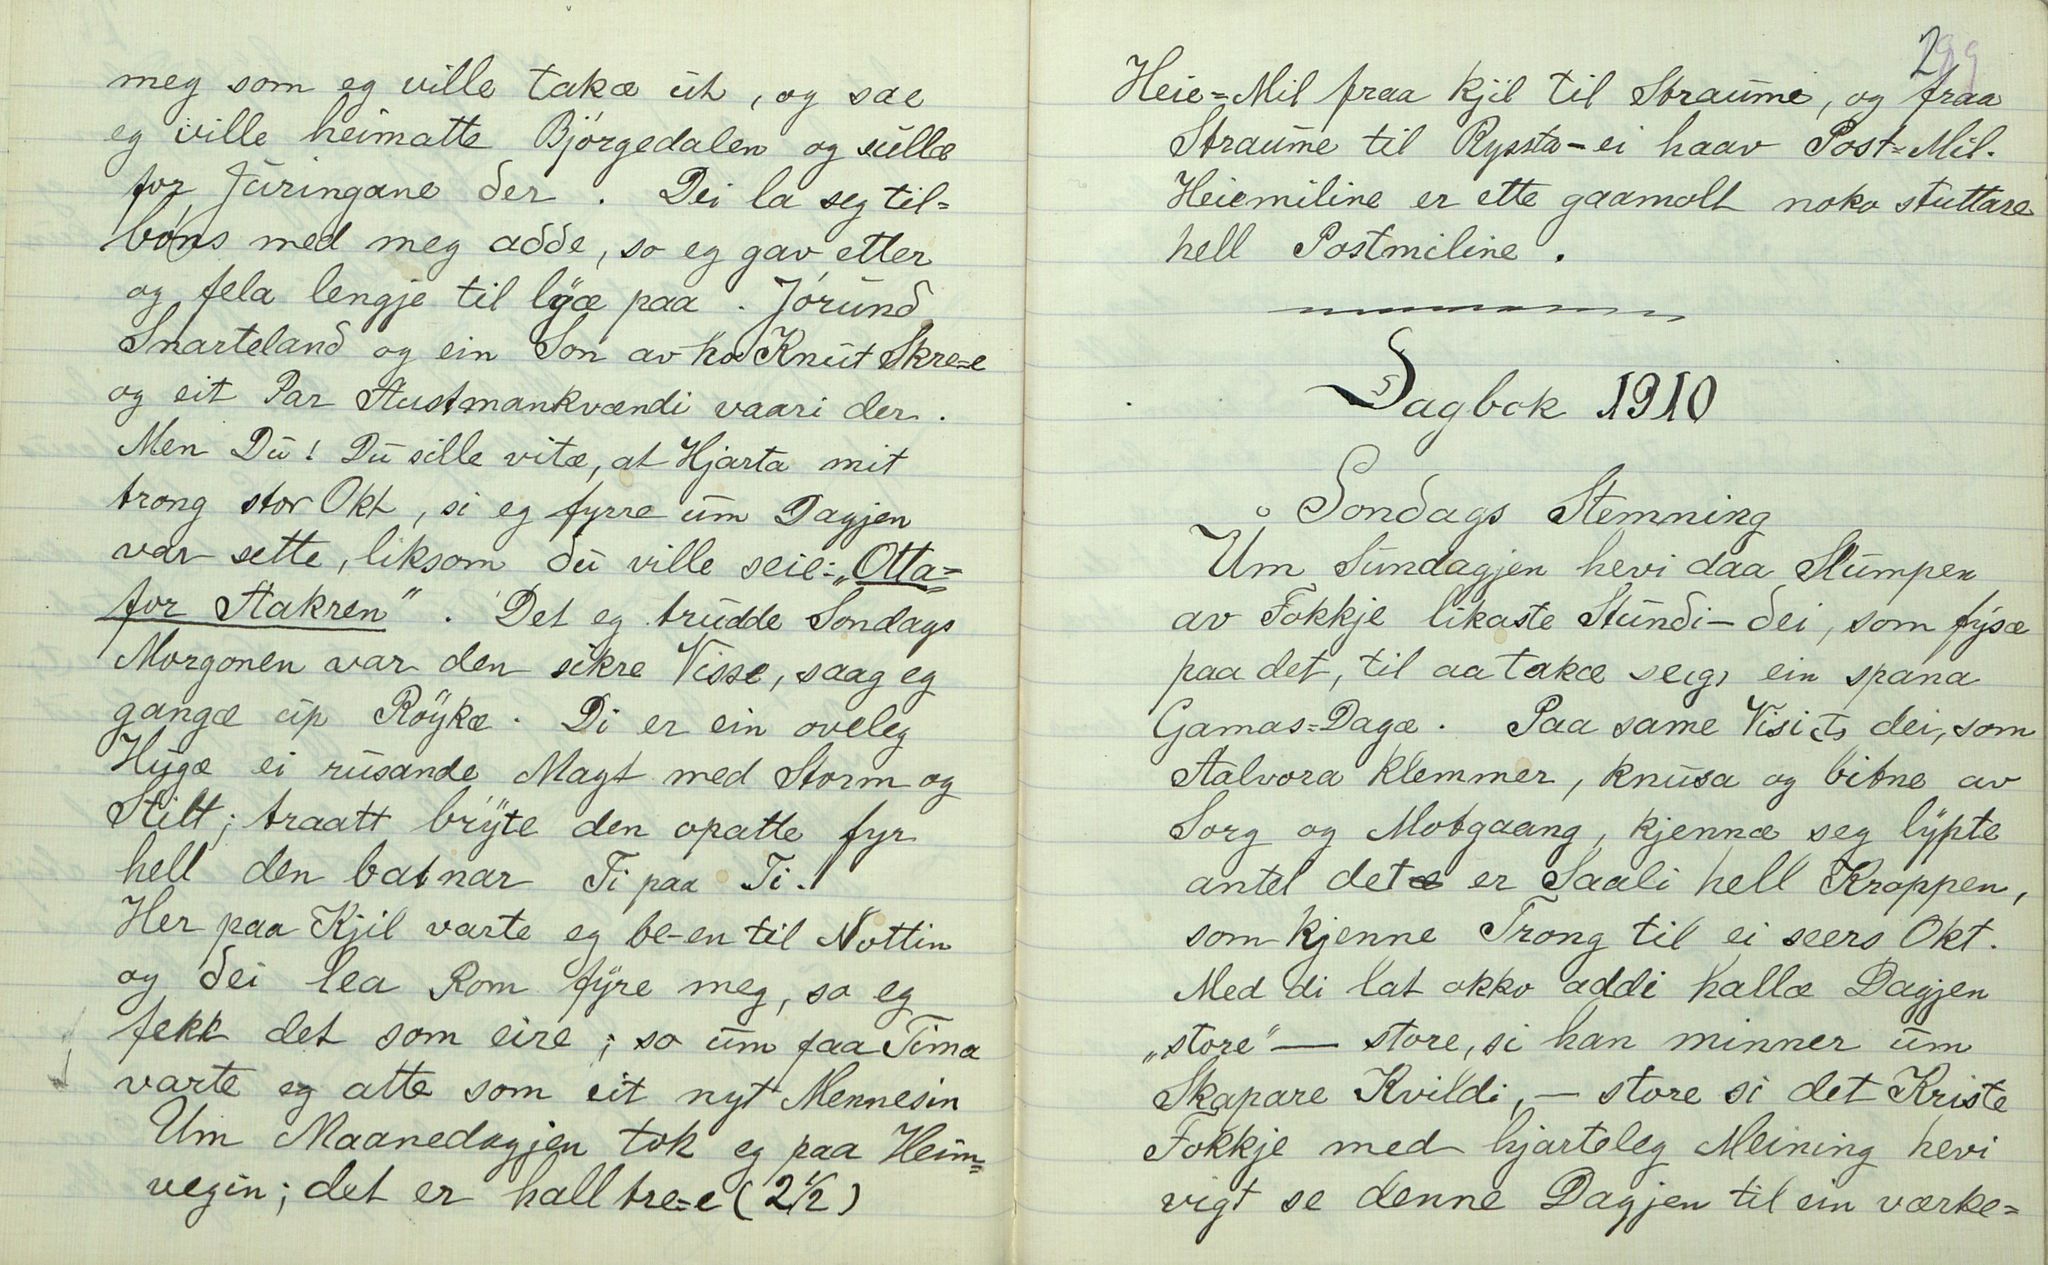 meg som eg ville takæ út, og sae
eg ville heimatte Bjørgedalen og sullæ
for Júringane der. Dei la seg til=
bóns med meg adde, so eg gav etter
og fela lengje til lÿæ paa. Jórund
Snarteland og ein Son av ho Knut Skre=e
og eit Par Austmankvændi vaari der.
Men Du! Du sille vitæ, at Hjarta mit
trong stor Okt, si eg fyrre um Dagjen
var sette, liksom du ville seie: „Otta=
for Aakren”. Det eg trudde Sondags
Morgonen var den sikre Visse, saag eg
gangæ up Röykæ. Di er ein oveleg
Hugæ ei rusande Magt med Storm og
Stilt; traatt brÿte den opatte fyr
hell den batnar Ti paa Ti.
Her paa Kjil varte eg be-en til Nottin
og dei lea Rom fÿre meg, so eg
fekk det som eire; so um faa Tima
varte eg atte som eit nyt Mennesin
Um Maanedagjen tok eg paa Heim=
vegin; det er hall tre=e (2 1/2)
299
Heie=Mil fraa Kjil til Straume, og fraa
Straume til Ryssta – ei haav Post=Mil.
Heiemiline er ette gaamolt noko stuttare
hell Postmiline.
Dagbok 1910
Sondags Stemning
Um Sundagjen hevi daa Slumpen
av Fokkje likaste Stundi – dei, som fýsæ
paa det, til aa takæ seg ein spana
Gamas=Dagæ. Paa same Visi dei, som
Aalvora klemmer, knusa og bitne av
Sorg og Motgaang, kjennæ seg lÿpte
antel det er Saali hell Kroppen,
som kjenne Trong til ei seers Okt.
Med di lat okko addi hallæ Dagjen
„store” — store, si han minner um
Skapare Kvildi, — store si det Kriste
Fokkje med hjarteleg Meining hevi
vigt se denne Dagjen til ein værke=